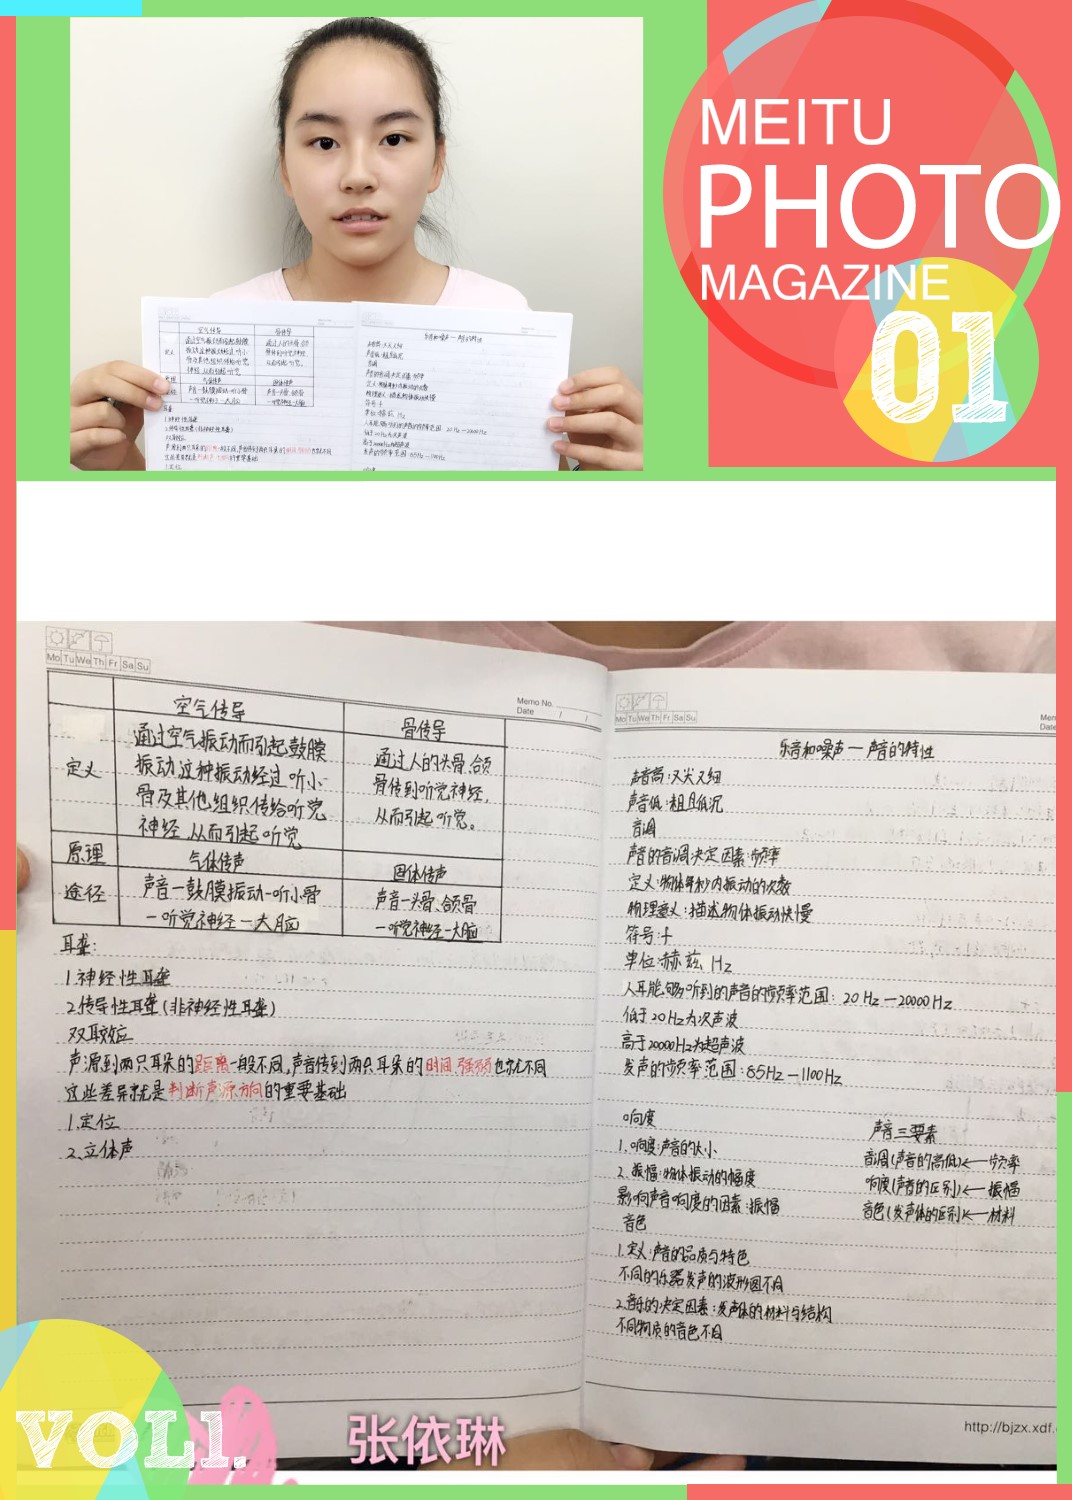 MEITU
PHOTO
MAGAZINE
01
Mo Tu We Th Fr Sa Su
Memo No.
Date / /
空气传导 骨传导
定义 通过空气振动而引起鼓膜 通过人的头骨、颌
振动,这种振动经过听小 骨传到听觉神经,
骨及其他组织传给听觉 从而引起听觉。
神经 从而引起听觉
原理 气体传声 固体传声
途径 声音—鼓膜振动—听小骨 声音—头骨、颌骨
—听觉神经—大脑 —听觉神经—大脑
耳聋:
1.神经性耳聋
2.传导性耳聋(非神经性耳聋)
双耳效应
声源到两只耳朵的距离一般不同,声音传到两只耳朵的时间、强弱也就不同
这些差异就是判断声源方向的重要基础
1.定位
2.立体声
Mo Tu We Th Fr Sa Su
Mem
Date
乐音和噪声—声音的特性
声音高:又尖又细
声音低:粗且低沉
音调
声音的音调决定因素:频率
定义:物体每秒内振动的次数
物理意义:描述物体振动快慢
符号:f
单位:赫兹 Hz
人耳能够听到的声音的频率范围:20Hz—20000Hz
低于20Hz为次声波
高于20000Hz为超声波
发声的频率范围:85Hz—1100Hz
响度
1.响度:声音的大小
2.振幅:物体振动的幅度
影响声音响度的因素:振幅
音色
1.定义:声音的品质与特色
不同的乐器发声的波形图不同
2.音色的决定因素:发声体的材料与结构
不同物质的音色不同
声音三要素
音调(声音的高低)←频率
响度(声音的区别)←振幅
音色(发声体的区别)←材料
http://bjzx.xdf.
VOL1.
张依琳